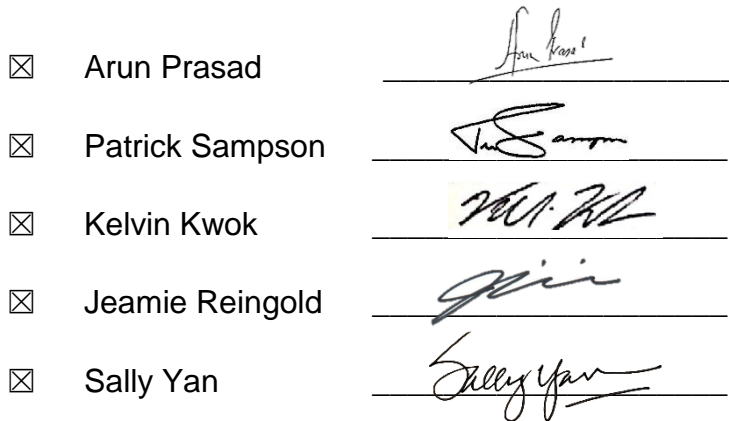 ☒ Arun Prasad Arun Prasad
☒ Patrick Sampson
☒ Kelvin Kwok
☒ Jeamie Reingold
☒ Sally Yan Sally Yan